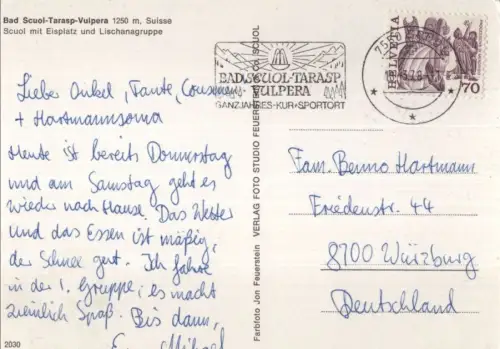 Bad Scuol-Tarasp-Vulpera 1250 m, Suisse
Scuol mit Eisplatz und Lischanagruppe
Lieber Onkel, Tante, Cousinen
+ Hartmannsoma
Heute ist bereits Donnerstag
und am Samstag geht es
wieder nach Hause. Das Wetter
und das Essen ist mäßig,
der Schnee gut. Ich fahre
in der 1. Gruppe; es macht
ziemlich Spaß. Bis dann,
Michael
2030
Farbfoto Jon Feuerstein VERLAG FOTO STUDIO FEUERSTEIN SCUOL
BAD SCUOL-TARASP
VULPERA
GANZJAHRES-KUR+SPORTORT
HELVETIA
70
Fam. Benno Hartmann
Friedenstr. 44
8700 Würzburg
Deutschland